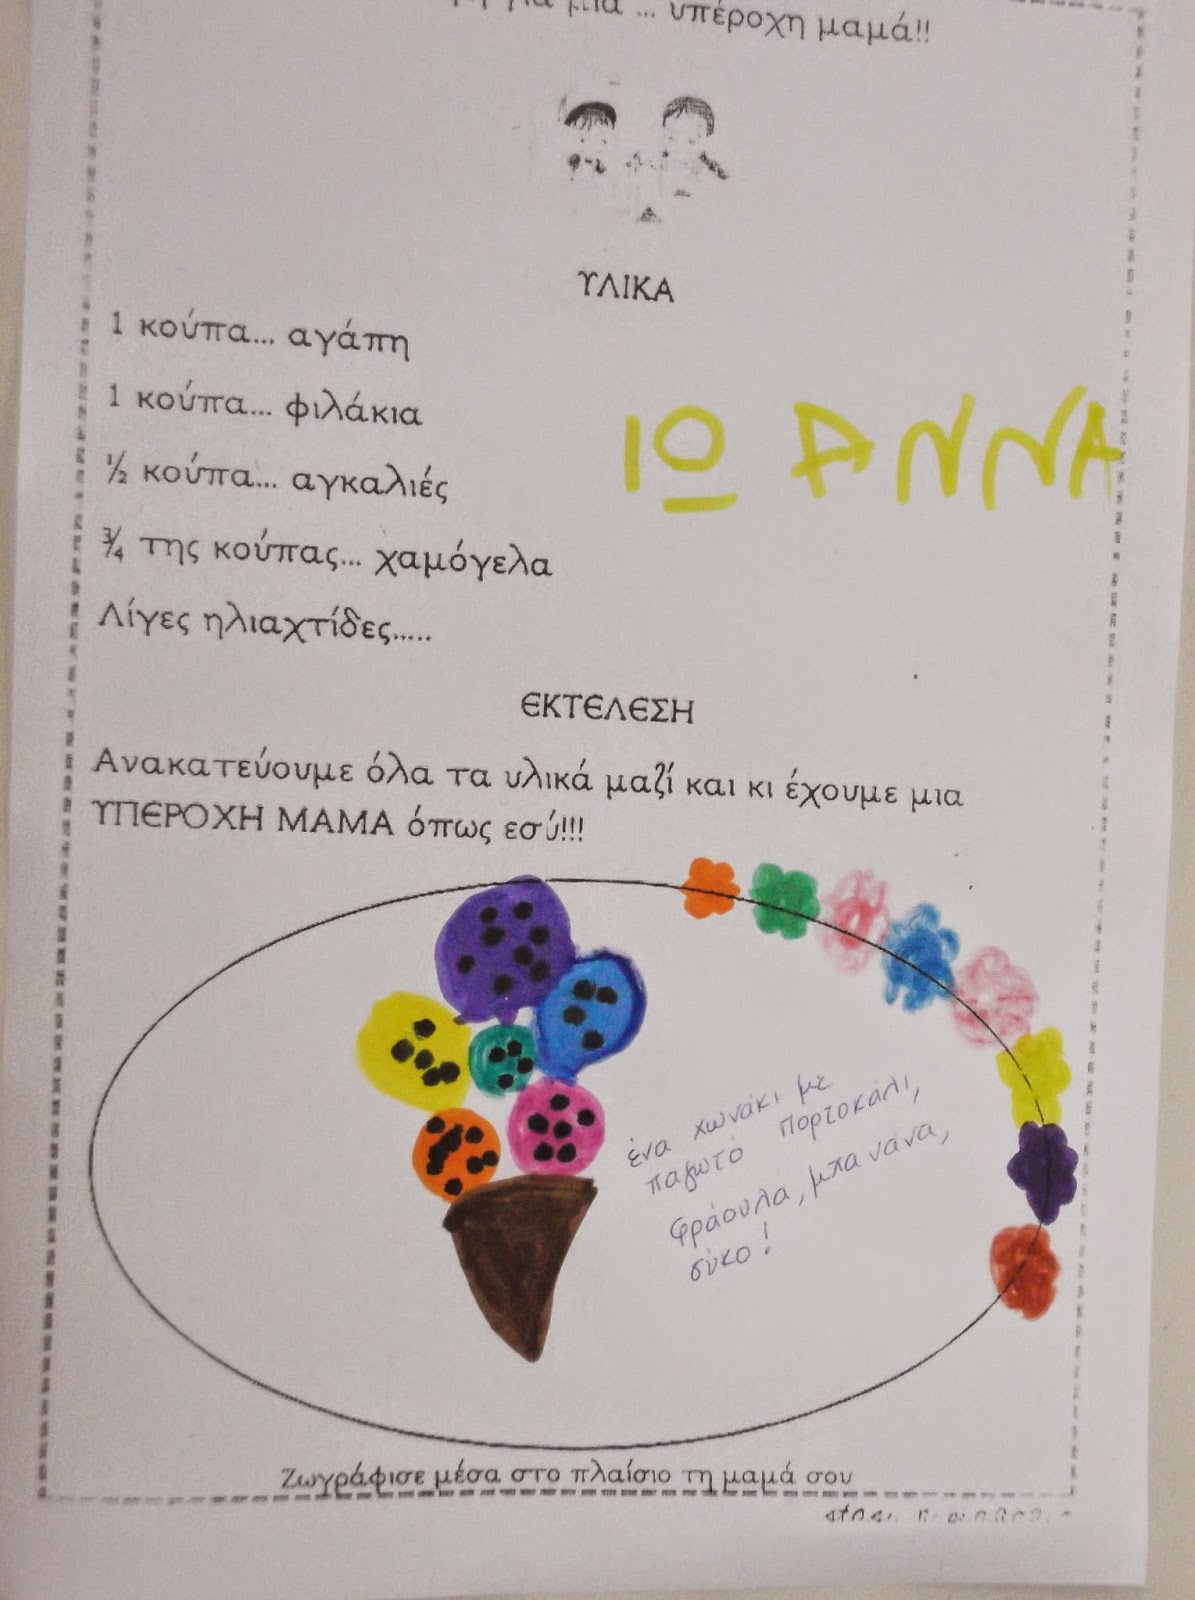 για μια ... υπέροχη μαμά!!
ΥΛΙΚΑ
1 κούπα... αγάπη
1 κούπα... φιλάκια
½ κούπα... αγκαλιές
¾ της κούπας... χαμόγελα
Λίγες ηλιαχτίδες.....
ΙΩΑΝΝΑ
ΕΚΤΕΛΕΣΗ
Ανακατεύουμε όλα τα υλικά μαζί και κι έχουμε μια
ΥΠΕΡΟΧΗ ΜΑΜΑ όπως εσύ!!!
ένα χωνάκι με
παγωτό πορτοκάλι,
φράουλα, μπανάνα,
σύκο!
Ζωγράφισε μέσα στο πλαίσιο τη μαμά σου